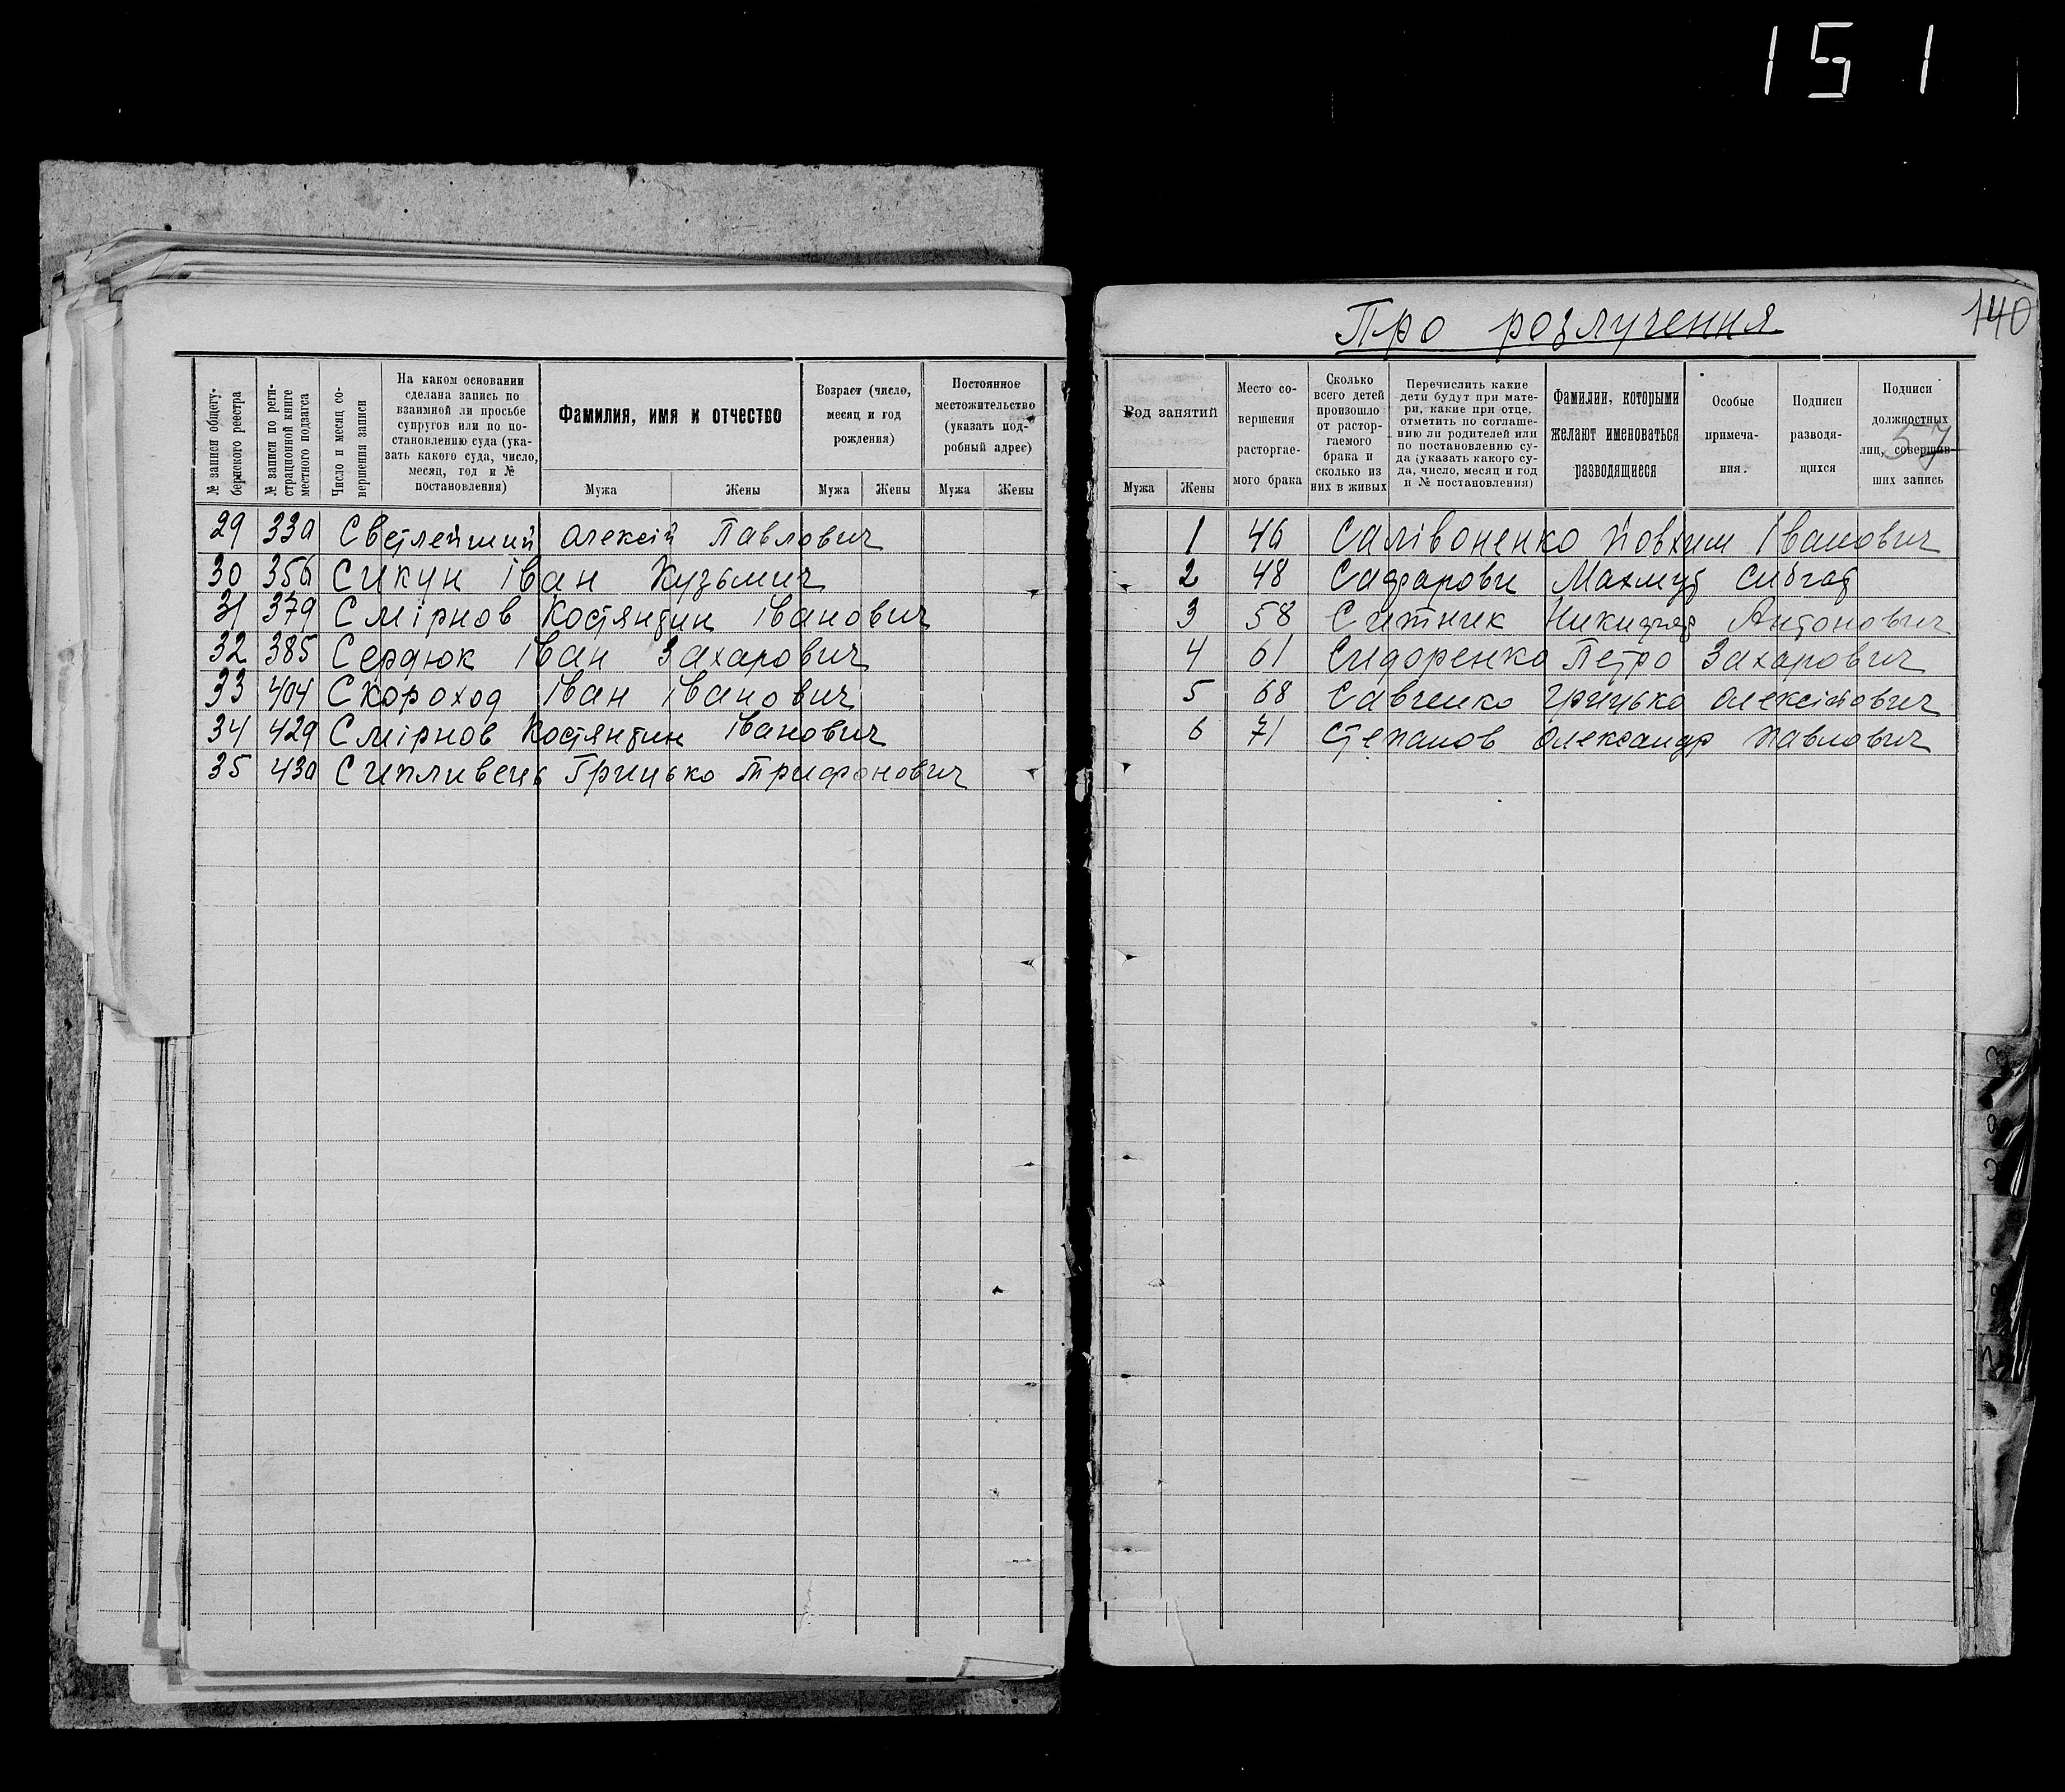 151
№ записи общегу-
бернского реестра
№ записи по реги-
страционной книге
местного подзагса
Число и месяц со-
вершения записи
На каком основании
сделана запись по
взаимной ли просьбе
супругов или по по-
становлению суда (ука-
зать какого суда, число,
месяц, год и №
постановления)
Фамилия, имя и отчество
Мужа Жены
Возраст (число,
месяц и год
рождения)
Мужа Жены
Постоянное
местожительство
(указать под-
робный адрес)
Мужа Жены
29 330 Светлейший Олексій Павлович
30 356 Сикун Іван Кузьмич
31 379 Смірнов Костянтин Іванович
32 385 Сердюк Іван Захарович
33 404 Скороход Іван Іванович
34 429 Смірнов Костянтин Іванович
35 430 Сипливець Грицько Трифонович
Про розлучення
140
Род занятий
Мужа Жены
Место со-
вершения
расторгае-
мого брака
Сколько
всего детей
произошло
от растор-
гаемого
брака и
сколько из
них в живых
Перечислить какие
дети будут при мате-
ри, какие при отце,
отметить по соглаше-
нию ли родителей или
по постановлению су-
да (указать какого су-
да, число, месяц и год
и № постановления)
Фамилии, которыми
желают именоваться
разводящиеся
Особые
примеча-
ния.
Подписи
разводя-
щихся
Подписи
должностных
лиц, совершив-
ших запись
57
1 46 Салівоненко Йовхим Іванович
2 48 Сафарови Махмуд
3 58 Ситник Никифор Антонович
4 61 Сидоренко Петро Захарович
5 68 Савченко Грицько Олексійович
6 71 Степанов Олександр Павлович